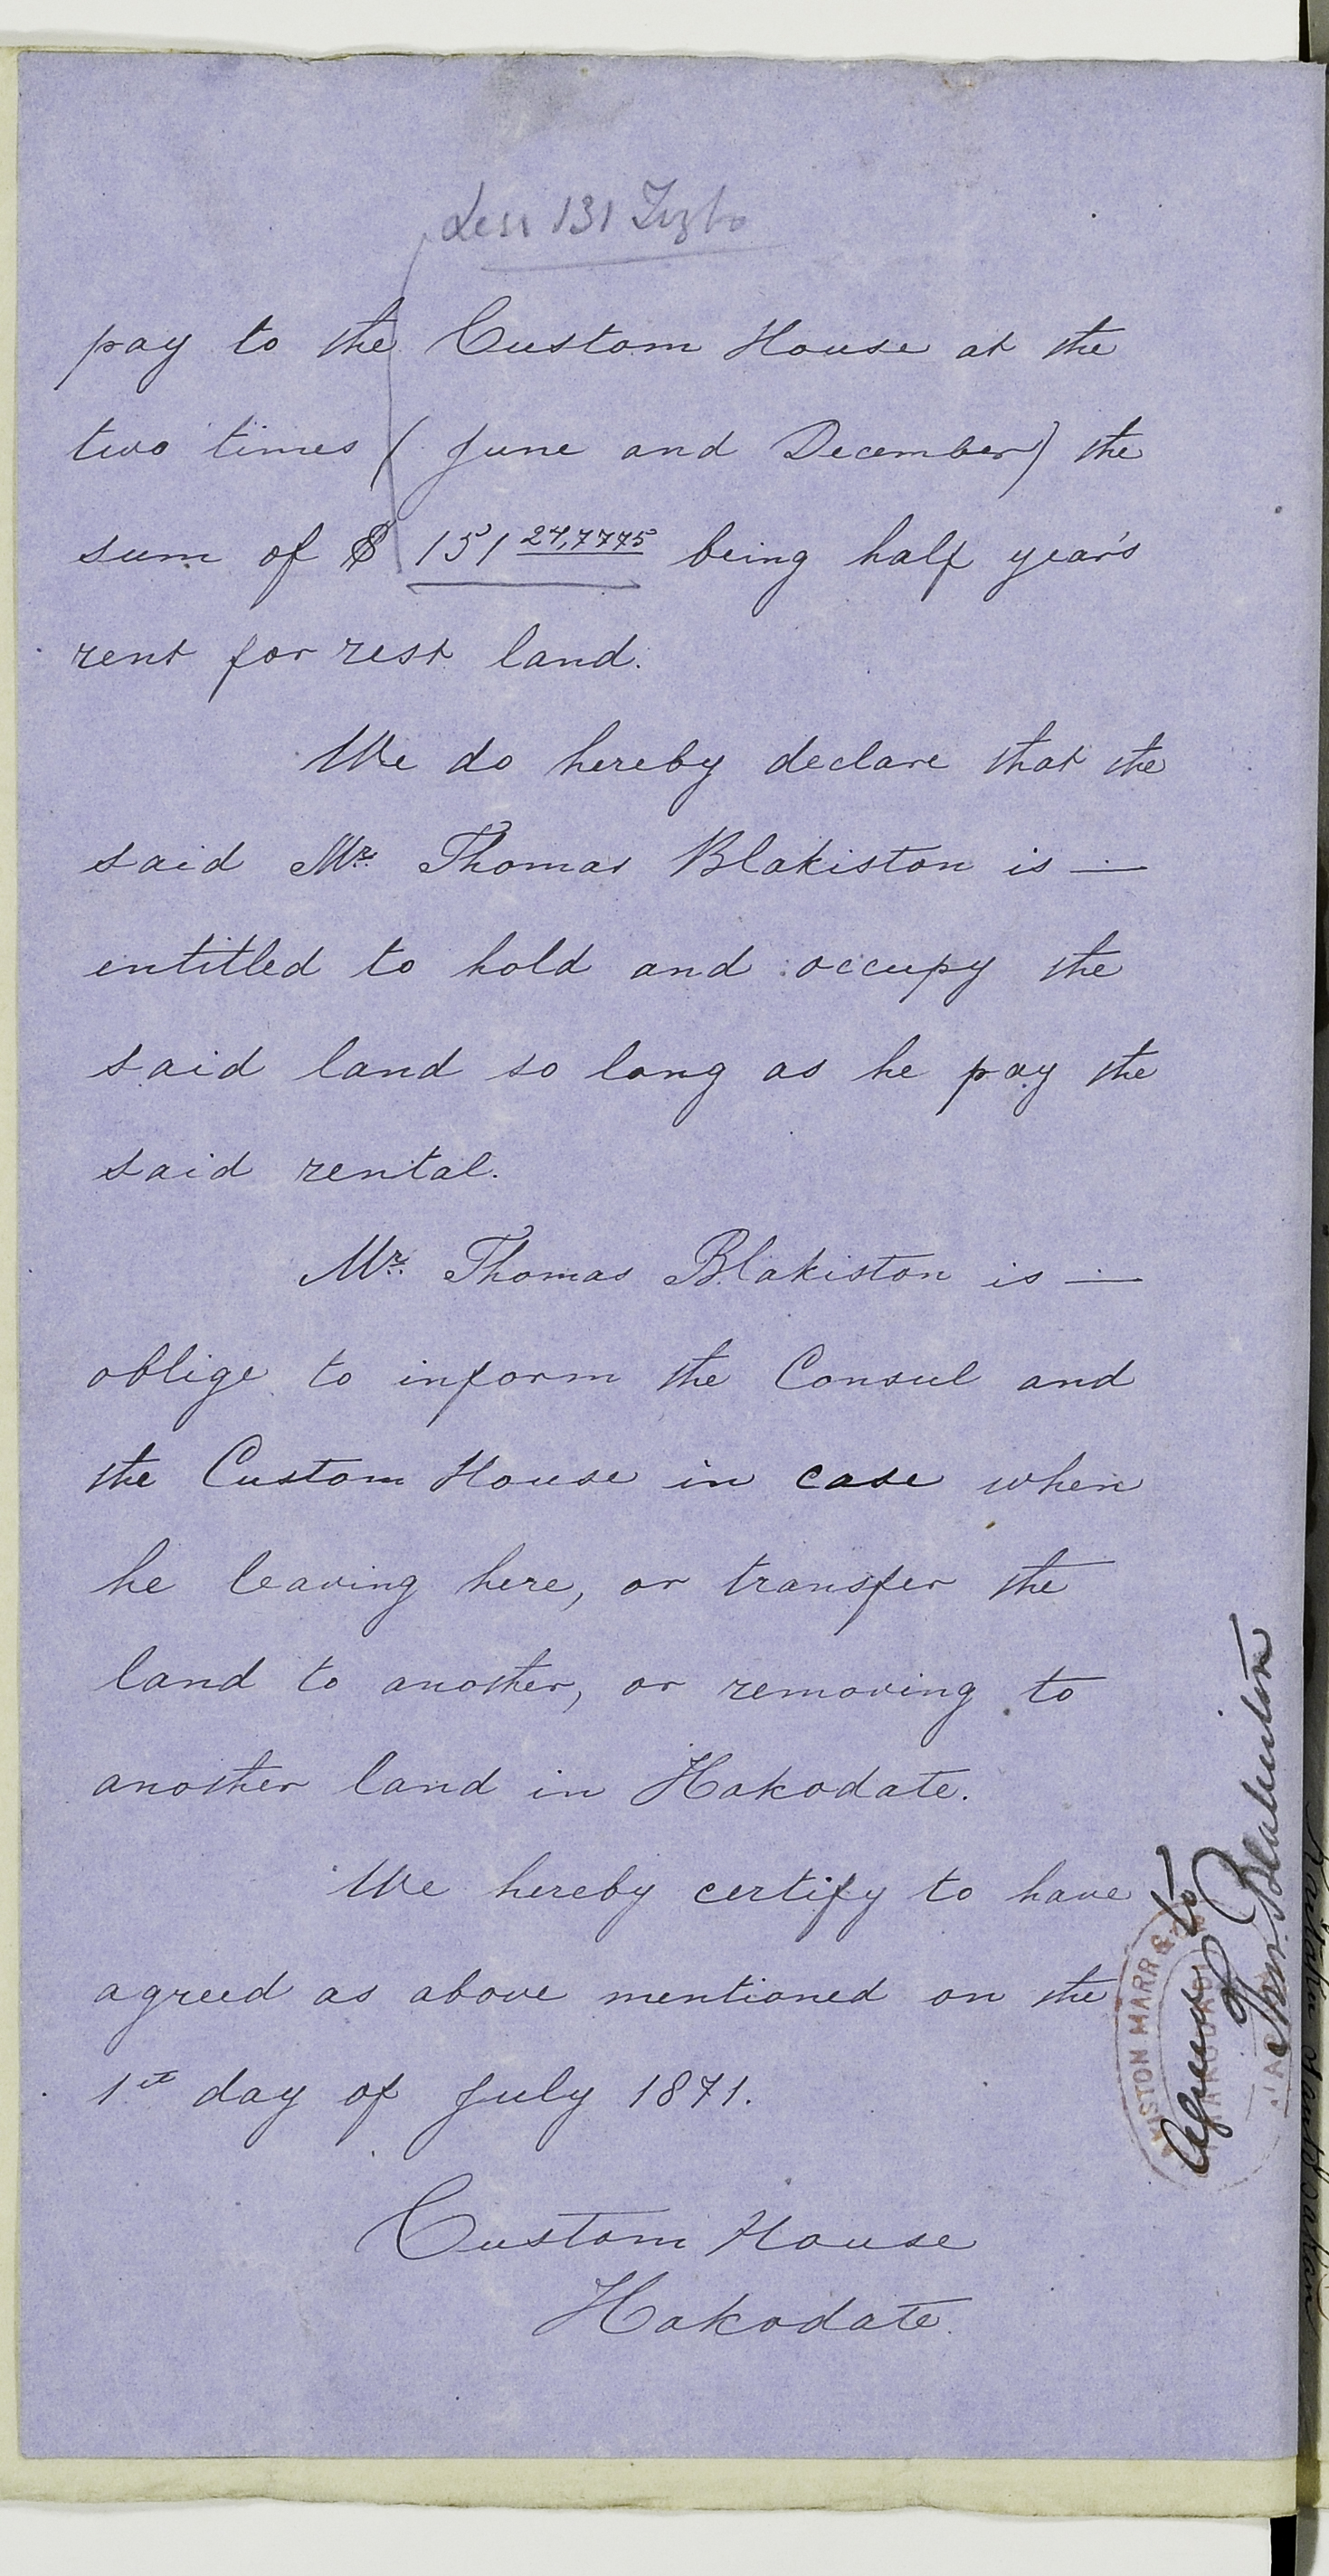 Less 131 Tszbo
pay to the Custom House at the
two times (June and December) the
sum of $ 151 24,7775 being half year's
rent for rest land.
We do hereby declare that the
said Mr. Thomas Blakiston is —
entitled to hold and occupy the
said land so long as he pay the
said rental.
Mr. Thomas Blakiston is —
oblige to inform the Consul and
the Custom House in case when
he leaving here, or transfer the
land to another, or removing to
another land in Hakodate.
We hereby certify to have
agreed as above mentioned on the
1st day of July 1871.
Custom House
Hakodate.
Agreed to
Thos. Blakiston